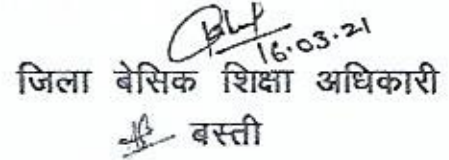 16.03.21
जिला बेसिक शिक्षा अधिकारी
बस्ती